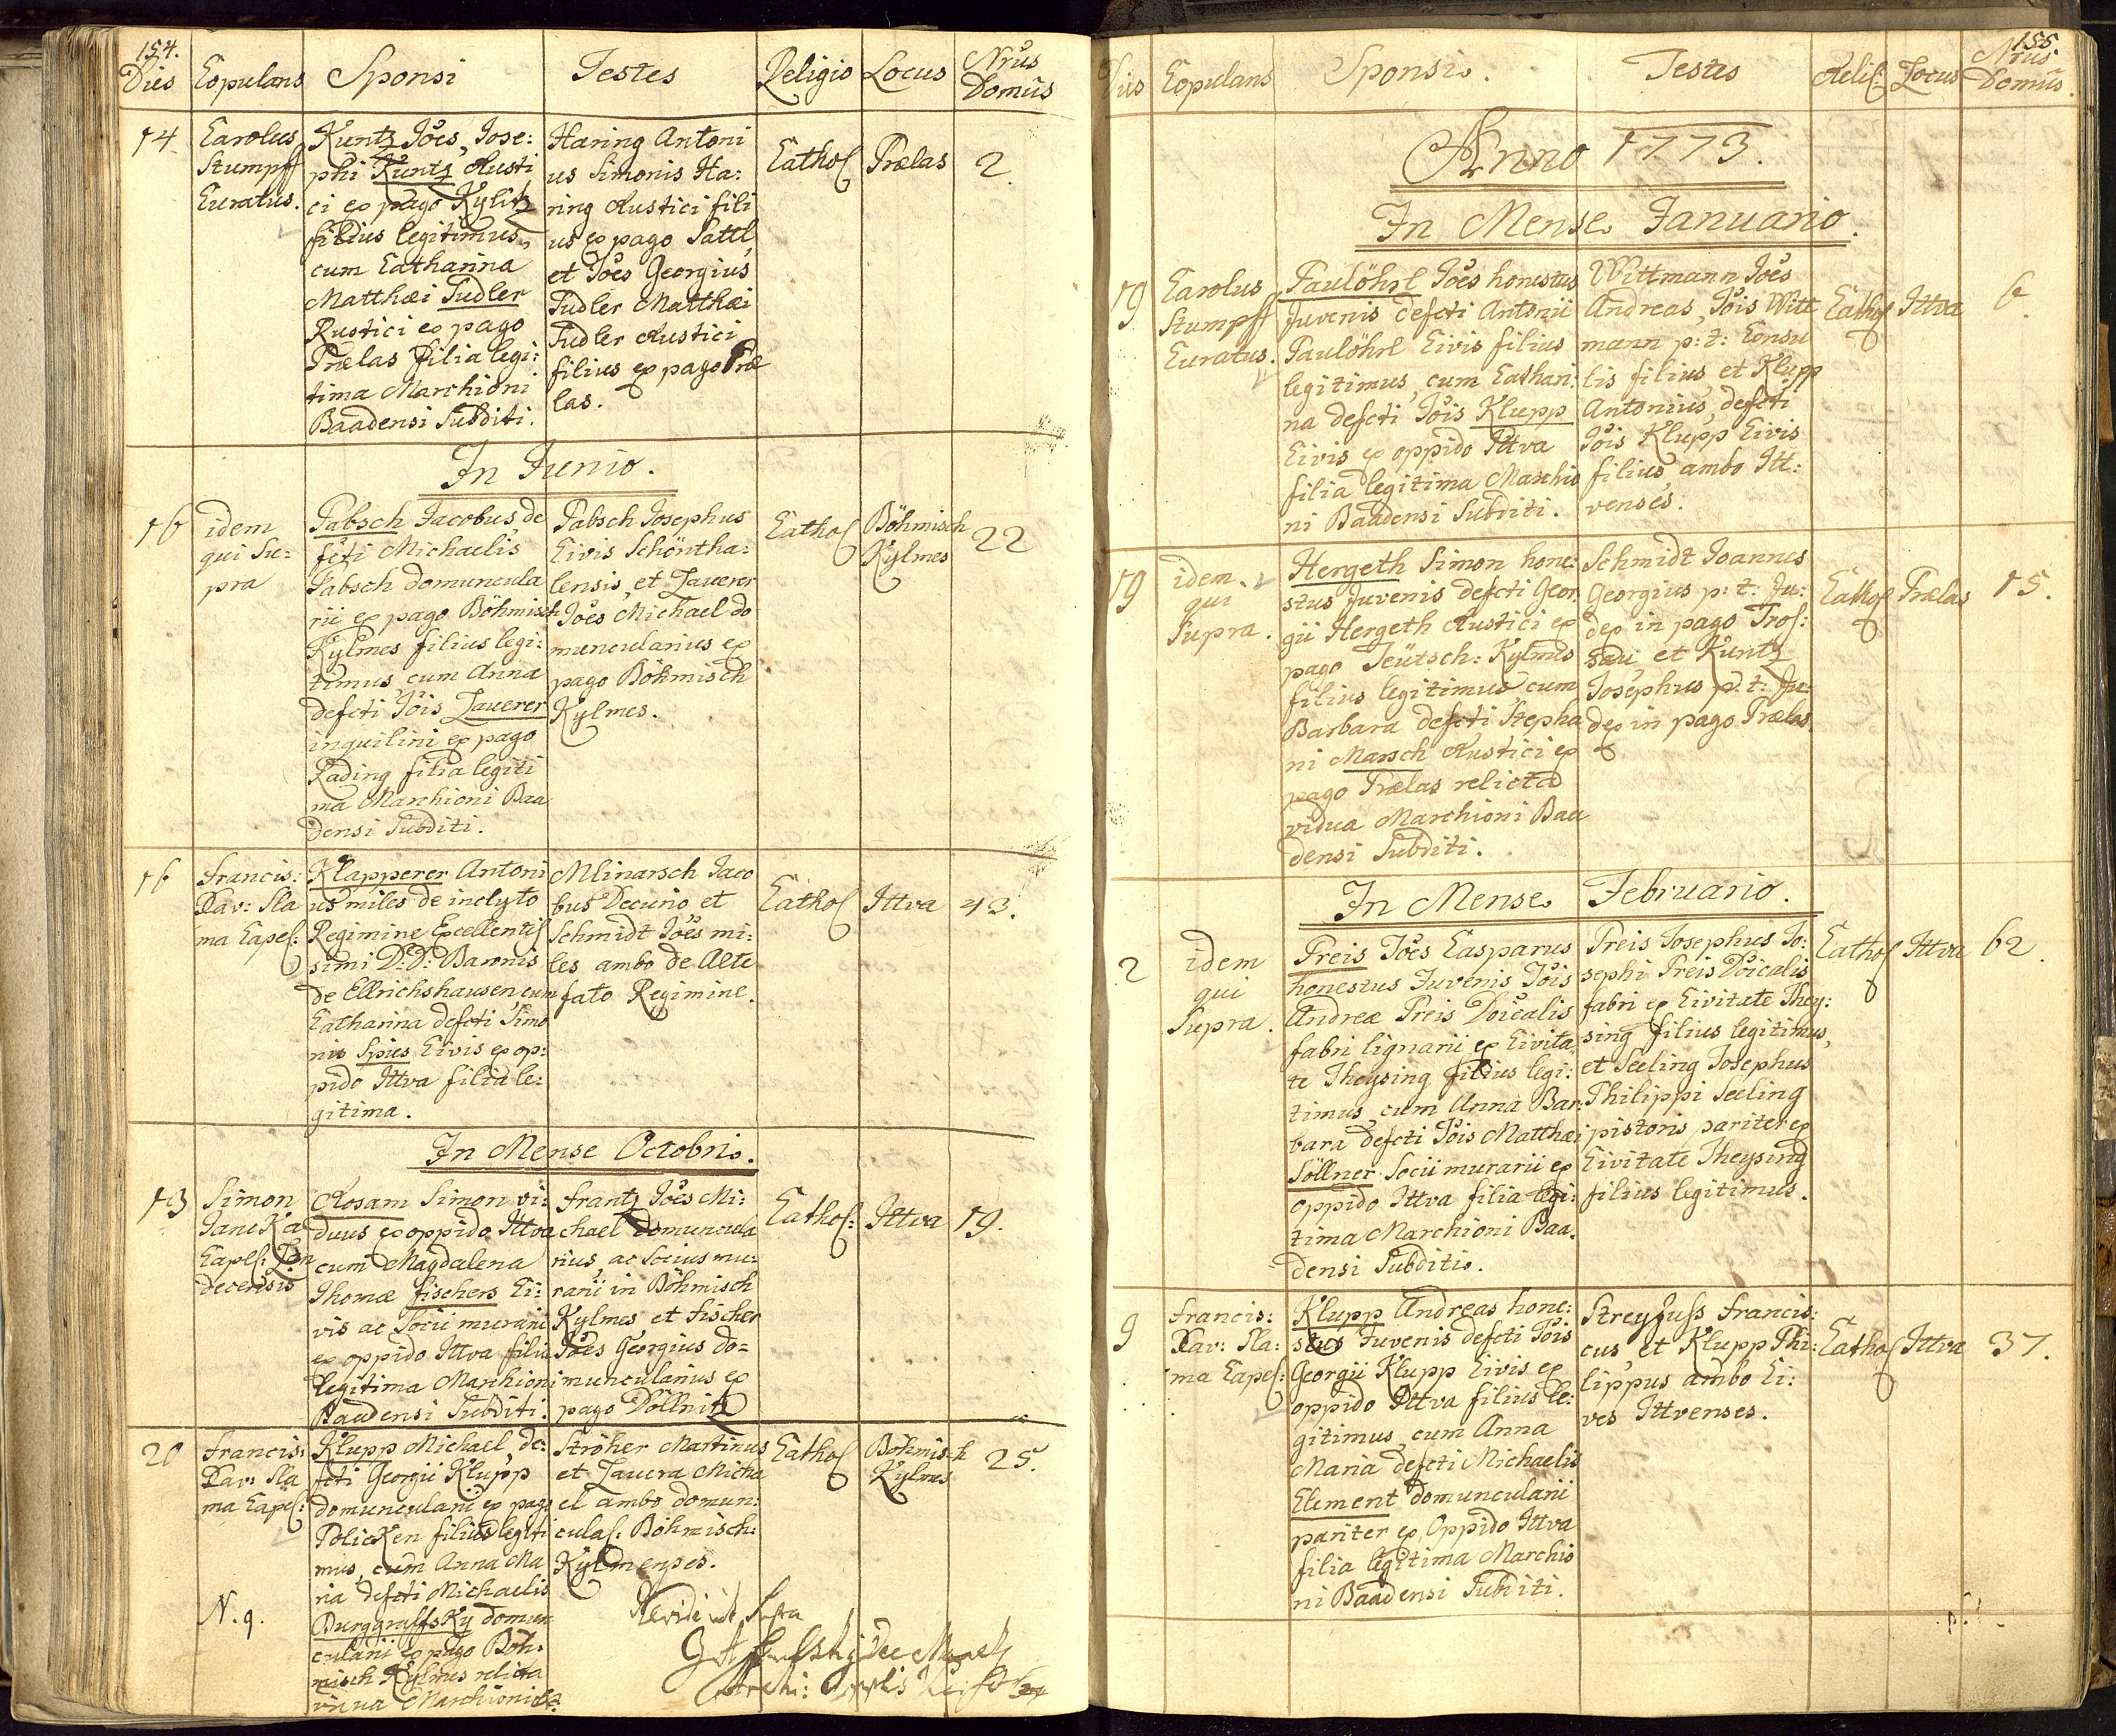 154.
Dies Copulans Sponsi Testes Religio Locus Nrus Domus
14.
Carolus
Stumpff
Curatus.
Kuntz Jões, Jose:
phi Kuntz Rusti
ci ex pago Kylitz
filius legitimus,
cum Catharina
Matthæi Tudler
Rustici ex pago
Prælas filia legi:
tima Marchioni
Baadensi Subditi.
Haring Antoni
us Simonis Ha:
ring Rustici fili
us ex pago Sattl,
et Jões Georgius
Tudler Matthæi
Tudler Rustici
filius ex pago Præ
las.
Cathol
Prælas
2.
In Junio.
16
idem
qui Su:
pra
Pabsch Jacobus, de
fcti Michaelis
Pabsch domuncula
rii ex pago Böhmisch
Kylmes filius legi:
timus, cum Anna
defcti Jõis Zauerer
inquilini ex pago
Rading filia legiti
ma Marchioni Baa
densi Subditi.
Pabsch Josephus
Civis Schöntha:
lensis, et Zauerer
Jões Michael do
muncularius ex
pago Böhmisch
Kylmes.
Cathol
Böhmisch
Kylmes
22
16
Francis:
Xav: Sla
ma Capel:
Klapperer Antoni
us miles de inclyto
Regimine Excellentis
simi D: D: Baronis
de Ellrichshausen, cum
Catharina defcti Simo
nis Spies Civis ex op:
pido Ittva filia le:
gitima.
Mlinarsch Jaco
bus Decurio et
Schmidt Jões mi:
les ambo de Ante
fato Regimine.
Cathol
Ittva
43.
In Mense Octobris.
13
Simon
Janeka
Capel:
decensis
Rosam Simon vi:
duus ex oppido Ittva
cum Magdalena
Thomæ Fischers Ci:
vis ac Socii murarii
ex oppido Ittva filia
legitima Marchioni
Baadensi Subditi.
Frantz Jões Mi:
chael domuncula
rius, ac Socius mu:
rarii in Böhmisch
Kylmes, et Fischer
Jões Georgius do=
muncularius ex
pago Döllnitz
Cathol:
Ittva
19.
20
Francis:
Xav: Sla
ma Capel:
Klupp Michael, de:
fcti Georgii Klupp
domuncularii ex pago
Policken filius legiti
mus, cum Anna Ma
ria defcti Michaelis
Burggraffsky domun
cularii ex pago Böh:
misch Kylmes relicta
vidua Marchioni
Ströher Martinus
et Zauera Micha
el ambo domun:
cular: Böhmisch:
Kylmenses.
Cathol
Böhmisch
Kylmes
25.
N. 9.
155
Dies Copulans Sponsi. Testes Relig: Locus Nrus Domus.
Anno 1773.
In Mense Januario.
19
Carolus
Stumpff
Curatus.
Paulöhrl Jões honestus
Juvenis defcti Antonii
Paulöhrl Civis filius
legitimus, cum Cathari:
na defcti Jõis Klupp
Civis ex oppido Ittva
filia legitima Marchio
ni Baadensi Subditi.
Wittmann Jões
Andreas, Jõis Witt
mann p: t: Consu
lis filius, et Klupp
Antonius, defcti
Jõis Klupp Civis
filius, ambo Itt:
venses.
Cathol
Ittva
6.
19
idem
qui
Supra.
Hergeth Simon hone:
stus Juvenis defcti Geor:
gii Hergeth Rustici ex
pago Teütsch: Kylmes
filius legitimus, cum
Barbara defcti Stepha
ni Marsch Rustici ex
pago Prælas relicta
vidua Marchioni Baa
densi Subditi.
Schmidt Joannes
Georgius p: t: Ju:
dex in pago Tros:
sau et Kuntz
Josephus p: t: Ju:
dex in pago Prælas.
Cathol
Prælas
15.
In Mense Februario.
2
idem
qui
Supra.
Preis Jões Casparus
honestus Juvenis Jõis
Andreæ Preis Doicalis
fabri lignarii ex Civita
te Theysing filius legi:
timus, cum Anna Bar:
bara defcti Jõis Matthæi
Söllner Socii murarii ex
oppido Ittva filia legi:
tima Marchioni Baa:
densi Subditis.
Preis Josephus Jo:
sephi Preis Doicalis
fabri ex Civitate They:
sing filius legitimus,
et Seeling Josephus
Philippi Seeling
pistoris pariter ex
Civitate Theysing
filius legitimus.
Cathol
Ittva
62.
9
Francis:
Xav: Sla:
ma Capel:
Klupp Andreas hone:
stus Juvenis defcti Jõis
Georgii Klupp Civis ex
oppido Ittva filius le:
gitimus, cum Anna
Maria defcti Michaelis
Element domuncularii
pariter ex Oppido Ittva
filia legitima Marchio
ni Baadensi Subditi.
Streyfuss Francis:
cus, et Klupp Phi:
lippus ambo Ci:
ves Ittvenses.
Cathol
Ittva
37.